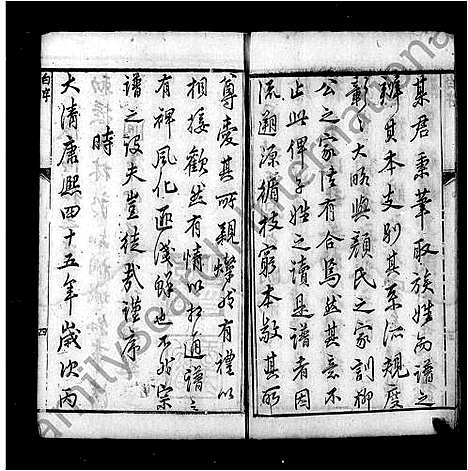 某君秉筆取族姓而譜之
辨其本支别其系派規度
彰〻大略與顔氏之家訓柳
公之家法有合焉然其意不
止此俾子姓之讀是譜者因
流溯源循枝窮本敬其所
尊愛其所親燦然有禮以
相接歡然有情以相通譜之
有裨風化匪淺鮮也不然宗
譜之設夫豈徒哉謹序
時
大清康熙四十五年歲次丙
自序
四
familysearch International